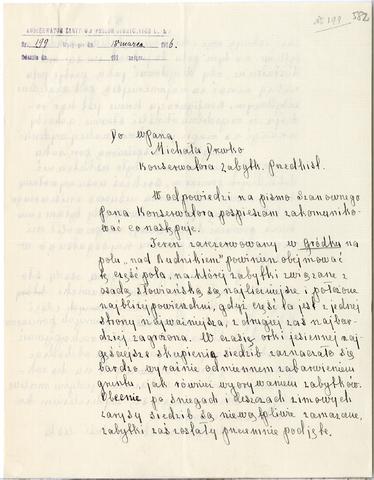 No 199
582
KONSERWATOR ZABYTKÓW PRZEDHISTORYCZNYCH
Nr. 199 dn. 15 marca 1926.
Do WPana
Michała Drewko
Konserwatora Zabytk. Przedhist.
W odpowiedzi na pismo Szanownego
Pana Konserwatora pospieszam zakomuniko-
wać co następuje.
Teren zarezerwowany w Gródku na
polu „nad Rudnikiem" powinien obejmować
tę część pola, na której zabytki związane z
osadą słowiańską są najliczniejsze i położone
najbliżej powierzchni, gdyż część ta jest z jednej
strony najważniejsza, z drugiej zaś najbar-
dziej zagrożona. W czasie orki jesiennej naj-
gęściejsze skupienia siedzib zaznaczało się
bardzo wyraźnie odmiennem zabarwieniem
gruntu, jak również wyorywaniem zabytków.
Obecnie, po śniegach i deszczach zimowych
zarysy siedzib są niewątpliwie zamazane,
zabytki zaś zostały przezemnie podjęte.